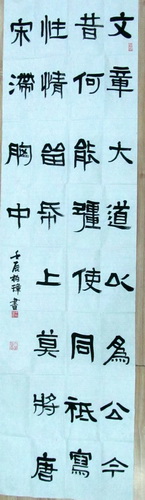 文章大道以為公今
昔何能彊使同祇寫
性情留帋上莫將唐
宋滯胸中
壬辰 書